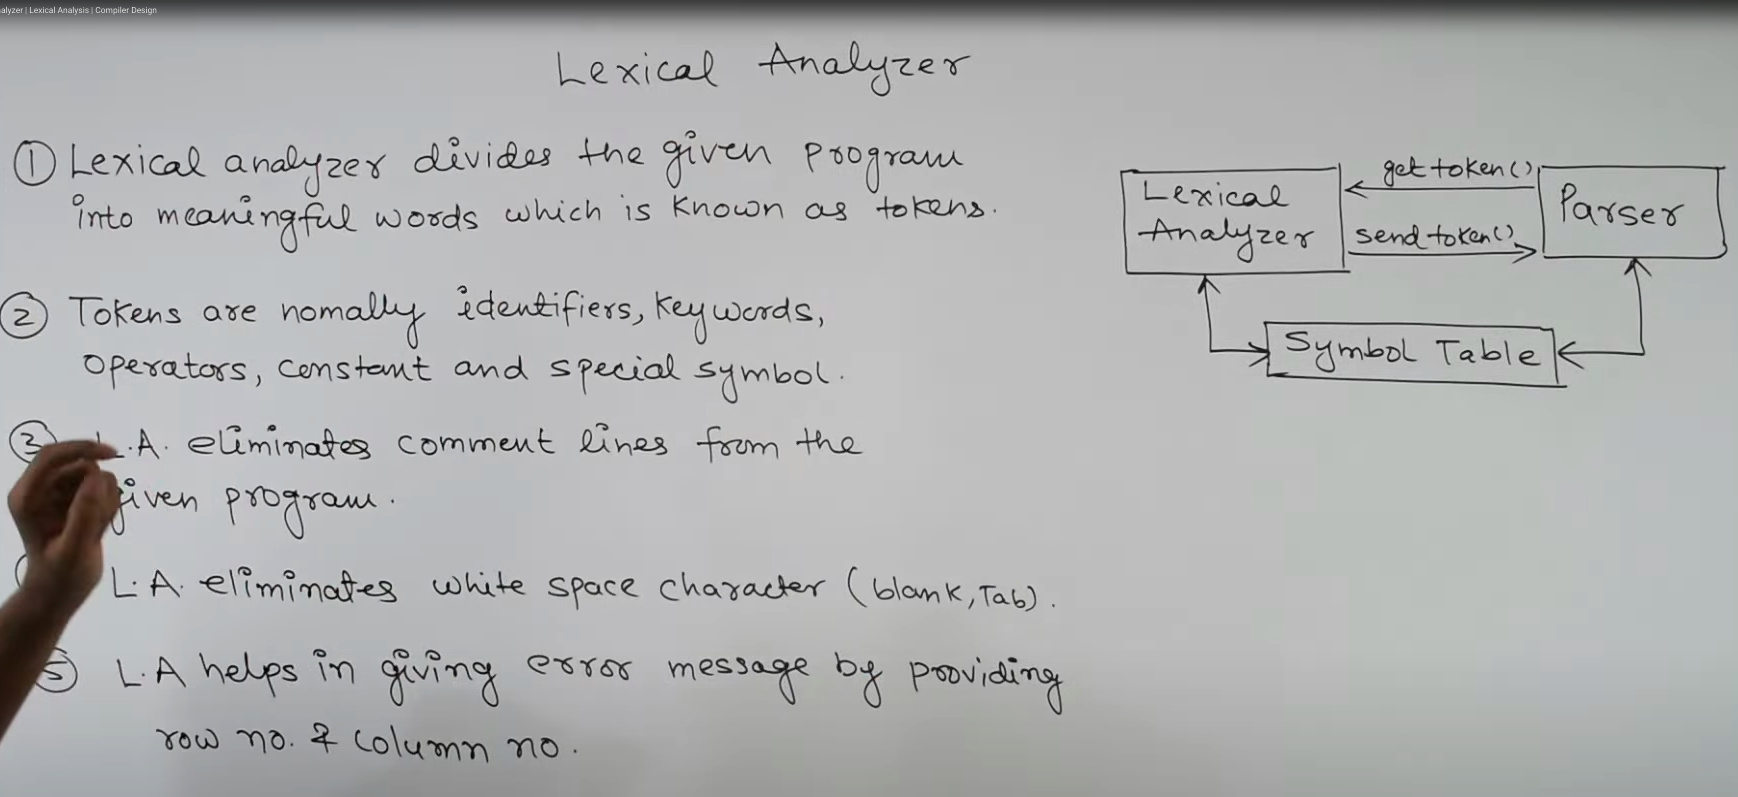 alyzer | Lexical Analysis | Compiler Design
Lexical Analyzer
① Lexical analyzer divides the given program
into meaningful words which is known as tokens.
② Tokens are nomally identifiers, keywords,
operators, constant and special symbol.
③ L.A. eliminates comment lines from the
given program.
L.A. eliminates white space character (blank, Tab).
⑤ L.A helps in giving error message by providing
row no. & column no.
get token()
Lexical
Analyzer
Parser
send token()
Symbol Table